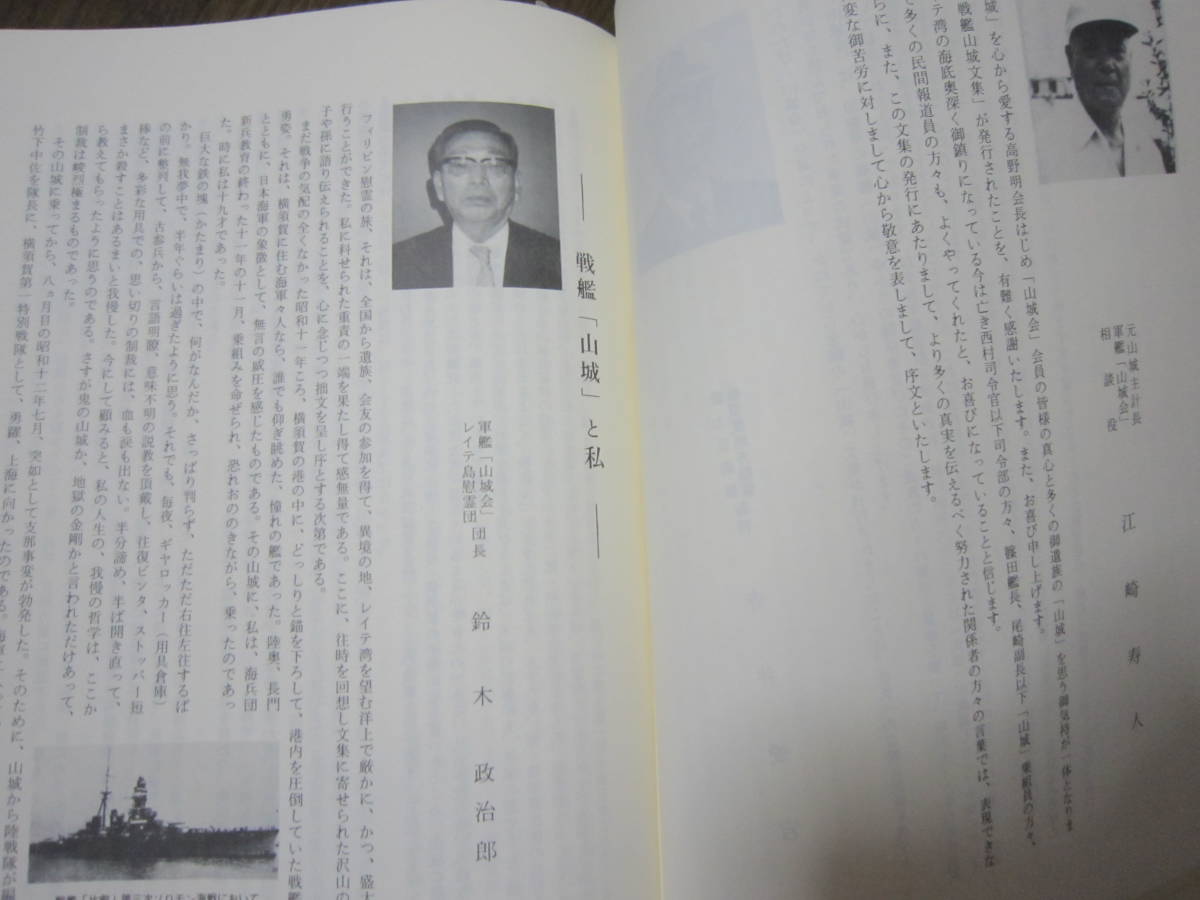 元山城主計長
軍艦「山城会」
相談役
江崎寿人
城」を心から愛する高野明会長はじめ「山城会」会員の皆様の真心と多くの御遺族の「山城」を思う御気持が一体となりま
戦艦山城文集」が発行されたことを、有難く感謝いたします。また、お喜び申し上げます。
テ湾の海底奥深く御鎮りになっている今は亡き西村司令官以下司令部の方々、篠田艦長、尾崎副長以下「山城」乗組員の方々、
で多くの民間報道員の方々も、よくやってくれたと、お喜びになっていることと信じます。
らに、また、この文集の発行にあたりまして、より多くの真実を伝えるべく努力された関係者の方々の言葉では、表現できな
変な御苦労に対しまして心から敬意を表しまして、序文といたします。
戦艦「山城」と私
軍艦「山城会」
レイテ島慰霊団 団長
鈴木政治郎
フィリピン慰霊の旅、それは、全国から遺族、会友の参加を得て、異境の地、レイテ湾を望む洋上で厳かに、かつ、盛大
行うことができた。私に科せられた重責の一端を果たし得て感無量である。ここに、往時を回想し文集に寄せられた沢山の
子や孫に語り伝えられることを、心に念じつつ拙文を呈し序とする次第である。
まだ戦争の気配の全くなかった昭和十一年ころ、横須賀の港の中に、どっしりと錨を下ろして、港内を圧倒していた戦艦
勇姿。それは、横須賀に住む海軍々人なら、誰でも仰ぎ眺めた、憧れの艦であった。陸奥、長門
とともに、日本海軍の象徴として、無言の威圧を感じたものである。その山城に、私は、海兵団
新兵教育の終わった十一年の十一月、乗組みを命ぜられ、恐れおののきながら、乗ったのであっ
た。時に私は十九才であった。
巨大な鉄の塊（かたまり）の中で、何がなんだか、さっぱり判らず、ただただ右往左往するば
かり。無我夢中で、半年ぐらいは過ぎたように思う。それでも、毎夜、ギヤロッカー（用具倉庫）
の前に整列して、古参兵から、言語明瞭、意味不明の説教を頂戴し、往復ビンタ、ストッパー短
棒など、多彩な用具での、思い切りの制裁には、血も涙も出ない。半分諦め、半ば開き直って、
まさか殺すことはあるまいと我慢した。今にして顧みると、私の人生の、我慢の哲学は、ここか
ら教えてもらったように思うのである。さすが鬼の山城か、地獄の金剛かと言われただけあって、
制裁は峻烈極まるものであった。
その山城に乗ってから、八ヵ月目の昭和十二年七月、突如として支那事変が勃発した。そのために、山城から陸戦隊が編
竹下中佐を隊長に、横須賀第一特別戦隊として、勇躍、上海に向かったのである。